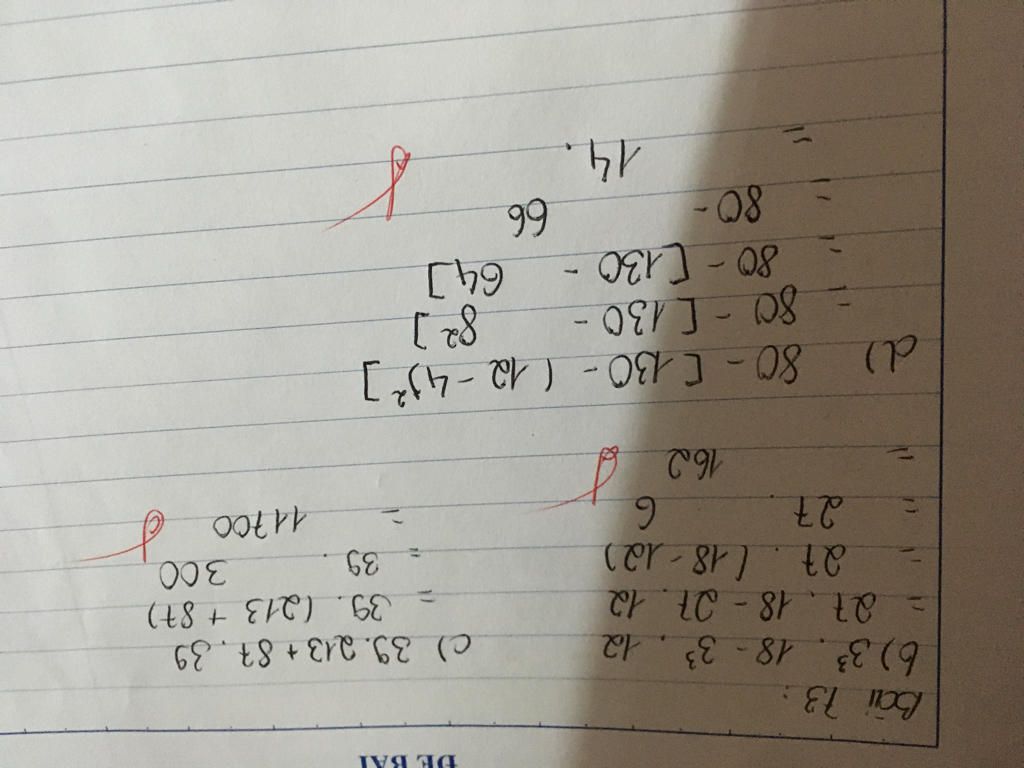 ĐỀ BÀI
Bài 73:
b) 3³. 18 - 3³. 12
= 27. 18 - 27. 12
= 27. (18 - 12)
= 27. 6
= 162
c) 39. 213 + 87. 39
= 39. (213 + 87)
= 39. 300
= 11700
d) 80 - [130 - (12 - 4)²]
= 80 - [130 - 8²]
= 80 - [130 - 64]
= 80 - 66
= 14.